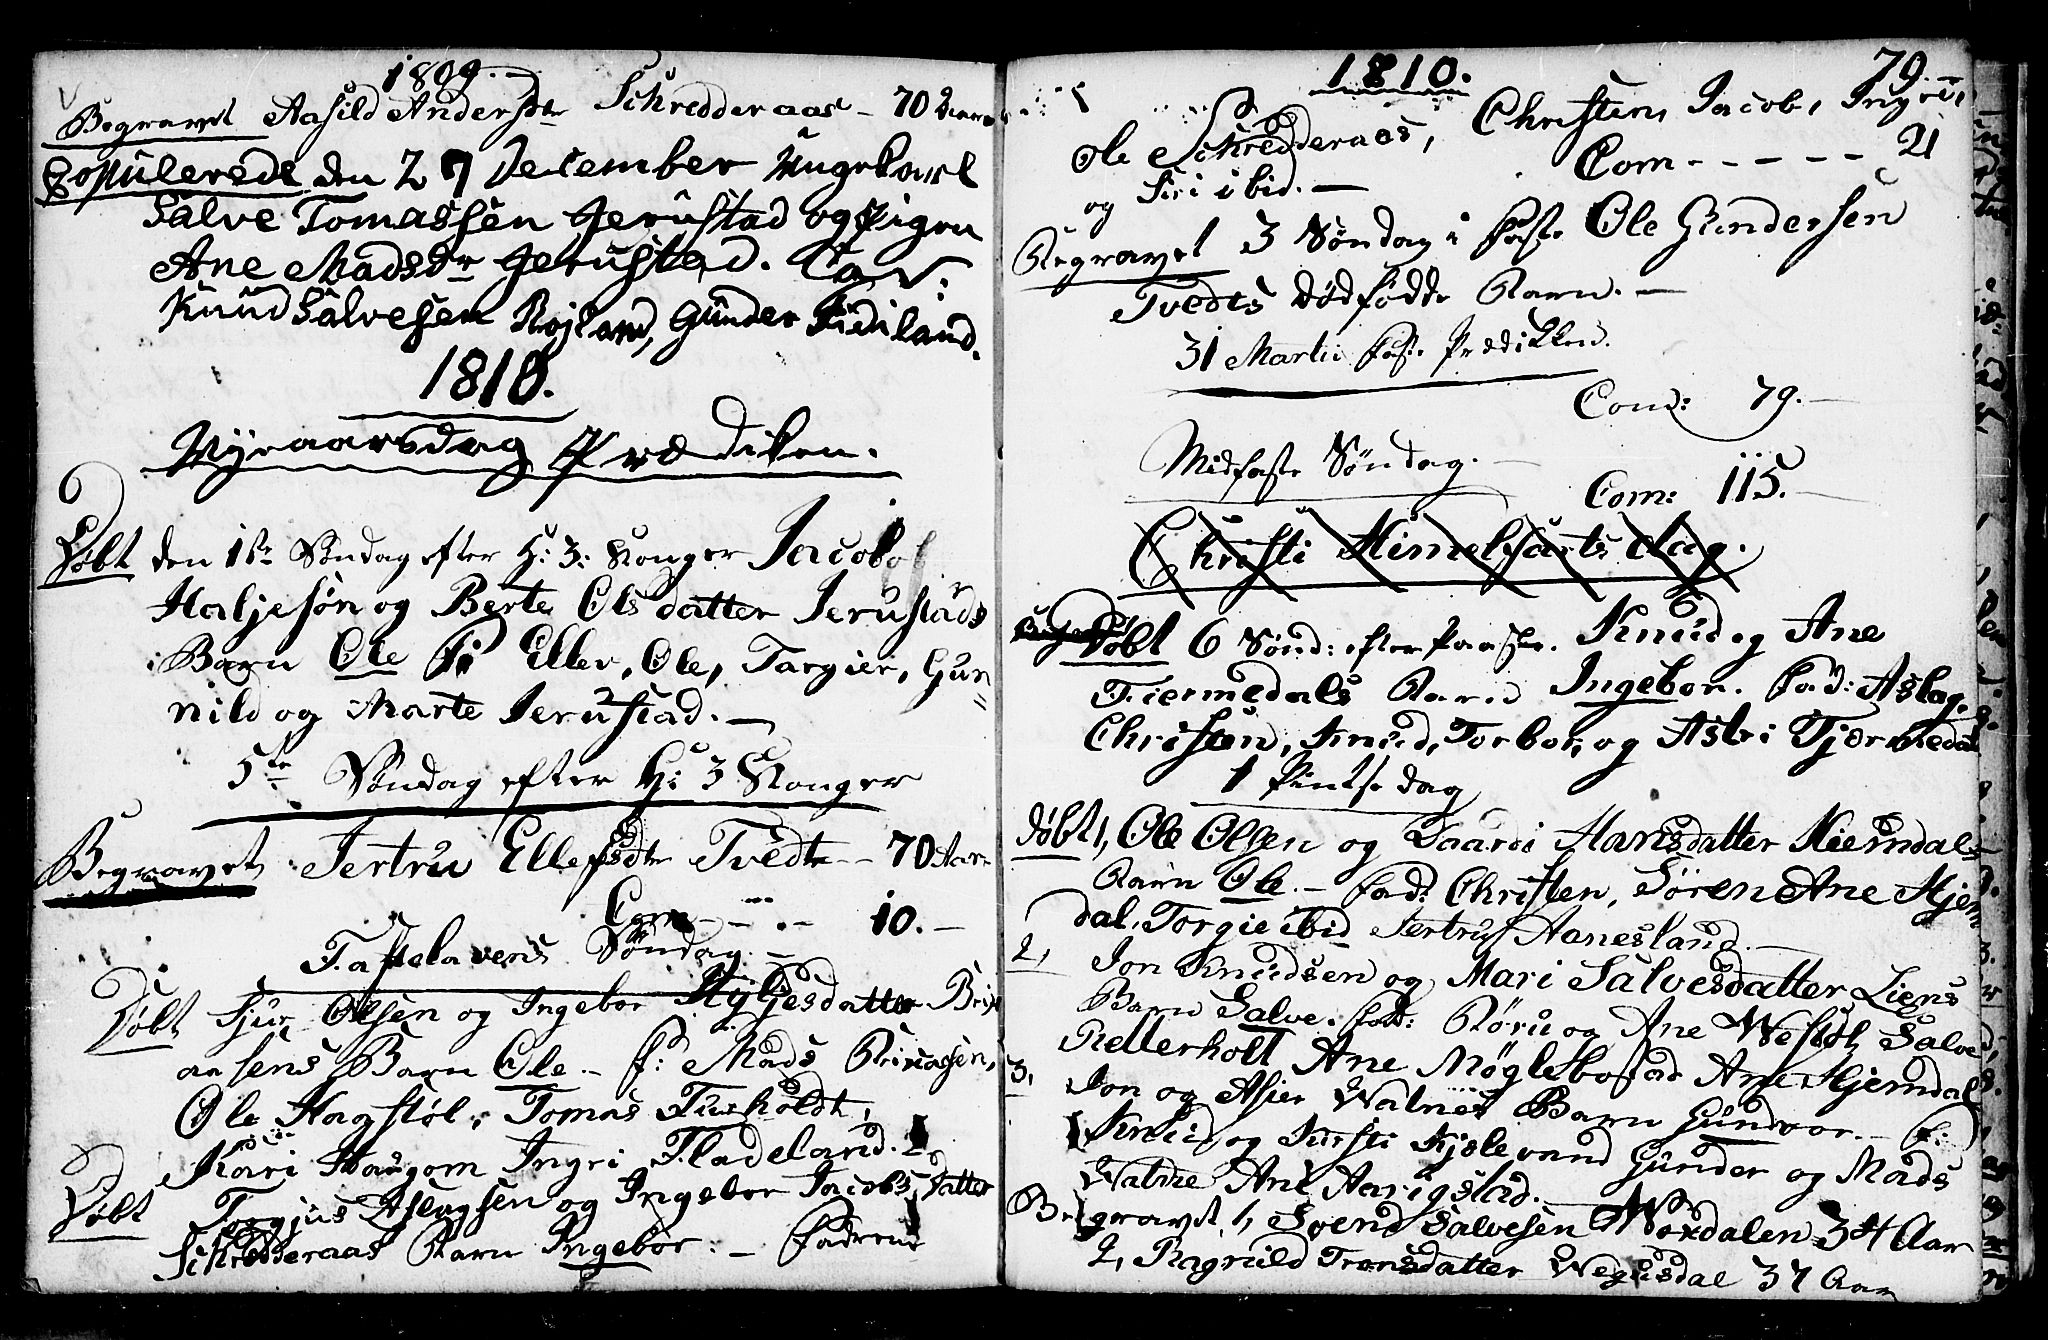 1809.
Begravet Aasild Andersdtr Schredderaas - 70 Aar
Copulerede den 27 December Ungekarl
Salve Tomassen Jerustad og Pigen
Ane Madsdr Jerustad. Cav:
Knud Salvesen Rojland, Gunder Fideland.
1810.
Nyeaarsdag Prædiken.
Døbt den 1ste Søndag efter H: 3: Konger Jacob
Haljesøn og Berte Olsdatter Jerustads
Barn Ole F: Ellev, Ole, Targier, Gun=
nild og Marte Jerustad. -
5te Søndag efter H: 3 Konger
Begravet Jertru Ellefsdtr Tvedt - 70 Aar
Com - - - 10. -
Fastelavens Søndag. -
Døbt Sjur Olsen og Ingebor Hyljesdatter Bri
aasens Barn Ole - F: Mads Briaasen,
Ole Hagstøl, Tomas Fuxholdt,
Kari Haugom Ingri Fladeland.
Døbt Torgjus Aslagsen og Ingebor Jacobsdatter
Schredderaas Barn Ingebor. - Faddere
1810. 79. -
Ole Schredderaas, Christen, Jacob, Ingri,
og Siri ibid. - Com - - - - - 21
Begravet 3 Søndag i Faste Ole Gundersen
Tvedts dødfødde Barn. -
31 Martii Faste Prædikken.
Com: 79. -
Midfaste Søndag. -
Com: 115. -
Christi Himelfarts dag.
Døbt 6 Sønd: efter Paaske. Knud og Ane
Tiermedals Barn Ingebor. Fad: Aslag,
Christen, Knud, Torbor, og Asbri Tjermedal
1 Pintse dag
Døbt 1, Ole Olsen og Gaardi Hansdatter Hierndals
Barn Ole. - Fad: Christen, Søren Ane Hjern
dal, Torgie ibid Jertru Aanesland. -
2, Jon Knudsen og Mari Salvesdatter Liens
Barn Salve. Fad: Røru og Ane Westøl, Salve
Rellerholt Ane Møglebostad Ane Hjerndal
3, Jon og Asier Watnes Barn Gundvor. - F:
Knud og Kirsti Kjslevand Gunder og Mads
Watne Ane Aarigstad. -
Begravet 1, Svend Salvesen Woxdalen 34 Aar
2, Ragnild Tronsdatter Wegusdal 37 Aar